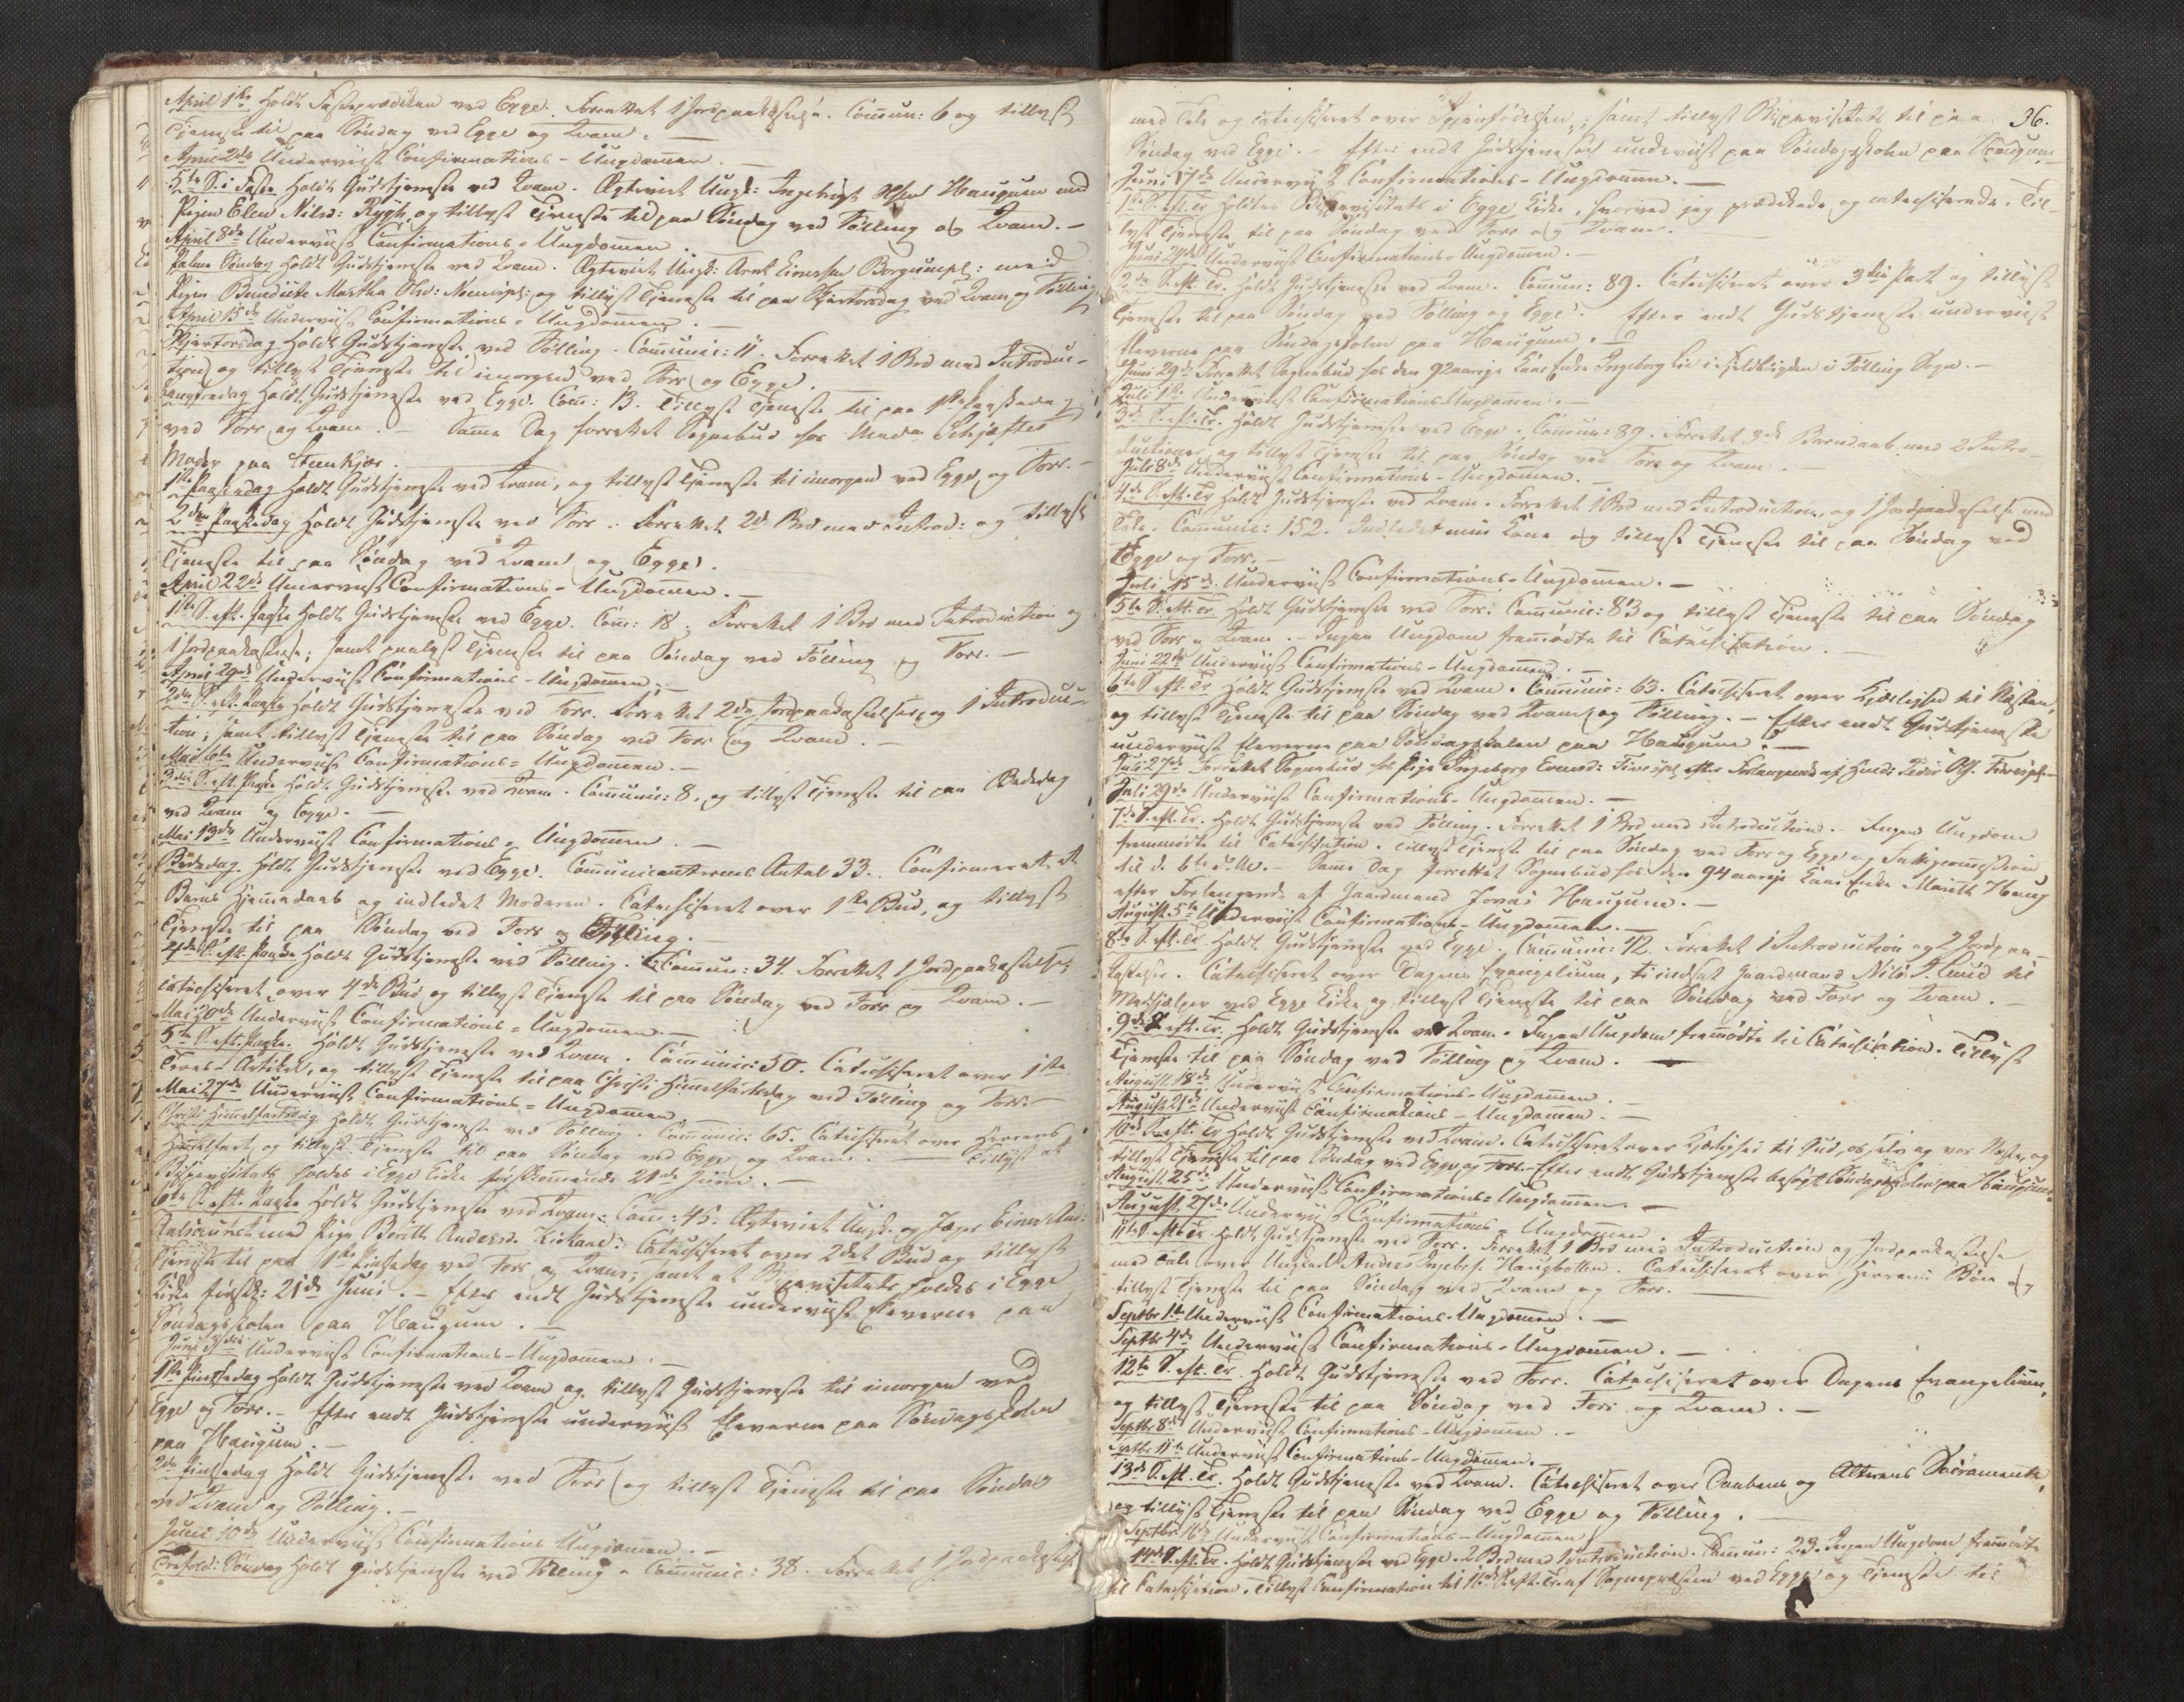 April 1ste Holdt Fasteprædiken ved Egge. Forrettet 1 Jordpaakastelse. Com̄un: 6 og tillyst
Tjeneste til paa Søndag ved Egge og Qvam. —
April 2de Underviist Confirmations-Ungdom̄en. —
5te S. i Faste Holdt Gudstjeneste ved Qvam. Ægteviet Ungk: Ingebrigt Haugum med
Pigen Elen Nilsd: Rygh, og tillyst Tjeneste til paa Søndag ved Følling og Qvam. —
April 8de Underviist Confirmations-Ungdom̄en.
Palme Søndag Holdt Gudstjeneste ved Qvam. Ægteviet Ungk: Arnt Borgumpl: med
Pigen Benedicte Martha Olsd: og tillyst Tjeneste til paa Skjertorsdag ved Qvam og Følling
April 15de Underviist Confirmations-Ungdom̄en. —
Skjertorsdag Holdt Gudstjeneste ved Følling. Com̄unic: 11. Forrettet 1 Brd med Introduc-
tion og tillyst Tjeneste til imorgen ved Forr og Egge.
Langfredag Holdt Gudstjeneste ved Egge. Com̄: 13. Tillyst Tjeneste til paa 1ste Paaskedag
ved Forr og Qvam. — Samme Dag forrettet Sognebud hos Mada Schjæftes
Moder paa Steenkjær.
1ste Paaskedag Holdt Gudstjeneste ved Qvam, og tillyst Tjeneste til imorgen ved Egge og Forr. —
2den Paaskedag Holdt Gudstjeneste ved Forr. Forrettet 2de Brd med Introd: og tillyst
Tjeneste til paa Søndag ved Qvam og Egge.
April 22de Underviist Confirmations-Ungdom̄en. —
1ste S. eft. Paaske Holdt Gudstjeneste ved Egge. Com̄: 18. Forrettet 1 Brd med Introduction og
1 Jordpaakastelse; samt paalyst Tjeneste til paa Søndag ved Følling og Forr. —
April 29de Underviist Confirmations-Ungdom̄en. —
2den S. eft. Paaske Holdt Gudstjeneste ved Forr. Forrettet 2de Jordpaakastelser, og 1 Introduc-
tion; samt tillyst Tjeneste til paa Søndag ved Forr og Qvam. —
Mai 6te Underviist Confirmations-Ungdom̄en. —
3die S. eft. Paaske Holdt Gudstjeneste ved Qvam. Com̄unic: 8, og tillyst Tjeneste til paa Bededag
ved Qvam og Egge. —
Mai 13de Underviist Confirmations-Ungdom̄en. —
Bededag Holdt Gudstjeneste ved Egge. Com̄unicanternes Antal 33. Confirmeret et
Barns Hjemmedaab og indledet Moderen. Catechiseret over 1ste Bud, og tillyst
Tjeneste til paa Søndag ved Forr og Følling. —
4de S. eft. Paaske Holdt Gudstjeneste ved Følling. Com̄un: 34. Forrettet 1 Jordpaakastelse,
catechiseret over 4de Bud og tillyst Tjeneste til paa Søndag ved Forr og Qvam. —
Mai 20de Underviist Confirmations-Ungdom̄en. —
5te S. eft. Paaske. Holdt Gudstjeneste ved Qvam. Com̄unic: 50. Catechiseret over 1ste
Troes-Artikel, og tillyst Tjeneste til paa Christi Himmelfartsdag ved Følling og Forr. —
Mai 27de Underviist Confirmations-Ungdom̄en.
Christi Himmelfartsdag Holdt Gudstjeneste ved Følling. Com̄unic: 65. Catechiseret over Herrens
Himmelfart, og tillyst Tjeneste til paa Søndag ved Egge og Qvam. — Tillyst at
Bispevisitats holdes i Egge Kirke førstkommende 21de Juni. —
6te S. eft. Paaske Holdt Gudstjeneste ved Qvam. Com̄: 45. Ægteviet Ungk. og Jæger Einer
med Pige Berith Andersd. Catechiseret over 2det Bud og tillyst
Tjeneste til paa 1ste Pintsedag ved Forr og Qvam; samt at Bispevisitats holdes i Egge
Kirke førstk: 21de Juni. — Efter endt Gudstjeneste underviist Eleverne paa
Søndagsskolen paa Haugum. —
Juni 3die Underviist Confirmations-Ungdom̄en. —
1ste Pintsedag Holdt Gudstjeneste ved Qvam og tillyst Gudstjeneste til imorgen ved
Egge og Forr. — Efter endt Gudstjeneste underviist Eleverne paa Søndagsskolen
paa Haugum. —
2den Pintsedag Holdt Gudstjeneste ved Forr og tillyst Tjeneste til paa Søndag
ved Qvam og Følling. —
Juni 10de Underviist Confirmations-Ungdom̄en. —
Trefold: Søndag Holdt Gudstjeneste ved Følling. Com̄unic: 38. Forrettet 1 Jordpaakastelse
36.
med Tale og catechiseret over Igjenfødelsen; samt tillyst Bispevisitats til paa
Søndag ved Egge. — Efter endt Gudstjeneste underviist paa Søndagsskolen paa Haugum
Juni 17de Underviist Confirmations-Ungdom̄en. —
1ste S. eft. Tr Holdtes Bispevisitats i Egge Kirke, hvorved jeg prædikede og catechiserede. Til-
lyst Tjeneste til paa Søndag ved Forr og Qvam.
Juni 24de Underviist Confirmations-Ungdom̄en. —
2den S. eft. Tr. Holdt Gudstjeneste ved Qvam. Com̄un: 89. Catechiseret over 3die Part og tillyst
Tjeneste til paa Søndag ved Følling og Egge. Efter endt Gudstjeneste underviist
Eleverne paa Søndagsskolen paa Haugum. —
Juni 29de Forrettet Sognebud hos den 92aarige Kaae Enke Ingeborg i Følling Sogn. —
Juli 1ste Underviist Confirmations-Ungdom̄en. —
3die S. eft. Tr. Holdt Gudstjeneste ved Egge. Com̄un: 89. Forrettet 3de Barnedaab med 2 Intro-
ductioner, og tillyst Tjeneste til paa Søndag ved Forr og Qvam.
Juli 8de Underviist Confirmations-Ungdom̄en. —
4de S. eft. Tr Holdt Gudstjeneste ved Qvam. Forrettet 1 Brd med Introduction, og 1 Jordpaakastelse med
Tale. Com̄unic: 152. Indledet min Kone og tillyst Tjeneste til paa Søndag ved
Egge og Forr. —
Juli 15de Underviist Confirmations-Ungdom̄en. —
5te S. eft. Tr. Holdt Gudstjeneste ved Forr. Com̄unic: 83 og tillyst Tjeneste til paa Søndag
ved Forr og Qvam. — Ingen Ungdom fremmødte til Catechisation. —
Juni 22de Underviist Confirmations-Ungdom̄en. —
6te S. eft. Tr Holdt Gudstjeneste ved Qvam. Com̄unic: 63. Catechiseret over Kjærlighed til Næsten,
og tillyst Tjeneste til paa Søndag ved Qvam og Følling. — Efter endt Gudstjeneste
underviist Eleverne paa Søndagsskolen paa Haugum. —
Juli 27de Forrettet Sognebud hos Pige Ingeborg efter Forlangende af
Juli 29de Underviist Confirmations-Ungdom̄en. —
7de S. eft. Tr. Holdt Gudstjeneste ved Følling. Forrettet 1 Brd med Introduction. Ingen Ungdom
fremmødte til Catechisation. Tillyst Tjeneste til paa Søndag ved Forr og Egge og Fattigcommission
til d. 6te d. M. — Samme Dag forrettet Sognebud hos den 94aarige Kaae Enke Marith Haug
efter Forlangende af Gaardmand Jonas Haugum. —
August 5te Underviist Confirmations-Ungdom̄en. —
8de S. eft. Tr. Holdt Gudstjeneste ved Egge. Com̄unic: 42. Forrettet 1 Introduction og 2 Jordpaa-
kastelser. Catechiseret over Dagens Evangelium, indsat Gaardmand Nils til
Medhjælper ved Egge Kirke og tillyst Tjeneste til paa Søndag ved Forr og Qvam. —
9de S. eft. Tr. Holdt Gudstjeneste ved Qvam. Ingen Ungdom fremmødte til Catechisation. Tillyst
Tjeneste til paa Søndag ved Følling og Qvam. —
August 18de Underviist Confirmations-Ungdom̄en. —
August 21de Underviist Confirmations-Ungdom̄en. —
10de S. eft. Tr Holdt Gudstjeneste ved Qvam. Catechiseret over Kjærlighed til Gud, os selv og vor Næste, og
tillyst Tjeneste til paa Søndag ved Egge og Forr. — Efter endt Gudstjeneste besøgt Søndagsskolen paa Haugum.
August 25de Underviist Confirmations-Ungdom̄en. —
August 27de Underviist Confirmations-Ungdom̄en.
11te S. eft. Tr. Holdt Gudstjeneste ved Forr. Forrettet 1 Brd med Introduction og Jordpaakastelse
med Tale over Ungkarl Anders Haugbotten. Catechiseret over Herrens Bøn og
tillyst Tjeneste til paa Søndag ved Qvam og Forr. —
Septbr 1te Underviist Confirmations-Ungdom̄en. —
Septbr 4de Underviist Confirmations-Ungdom̄en. —
12te S. eft. Tr. Holdt Gudstjeneste ved Forr. Catechiseret over Dagens Evangelium,
og tillyst Tjeneste til paa Søndag ved Forr og Qvam. —
Septbr 8de Underviist Confirmations-Ungdom̄en. —
Septbr 11te Underviist Confirmations-Ungdom̄en. —
13de S. eft. Tr. Holdt Gudstjeneste ved Qvam. Catechiseret over Daabens og Alterens Sacramente,
og tillyst Tjeneste til paa Søndag ved Egge og Følling. —
Septbr 16de Underviist Confirmations-Ungdom̄en
14de S. eft. Tr. Holdt Gudstjeneste ved Egge. 2 Brd med 1 Introduction. Com̄un: 23. Ingen Ungdom fremmødte
til Catechisation. Tillyst Confirmation til 16de S. eft. Tr. af Sognepræsten ved Egge og Tjeneste til